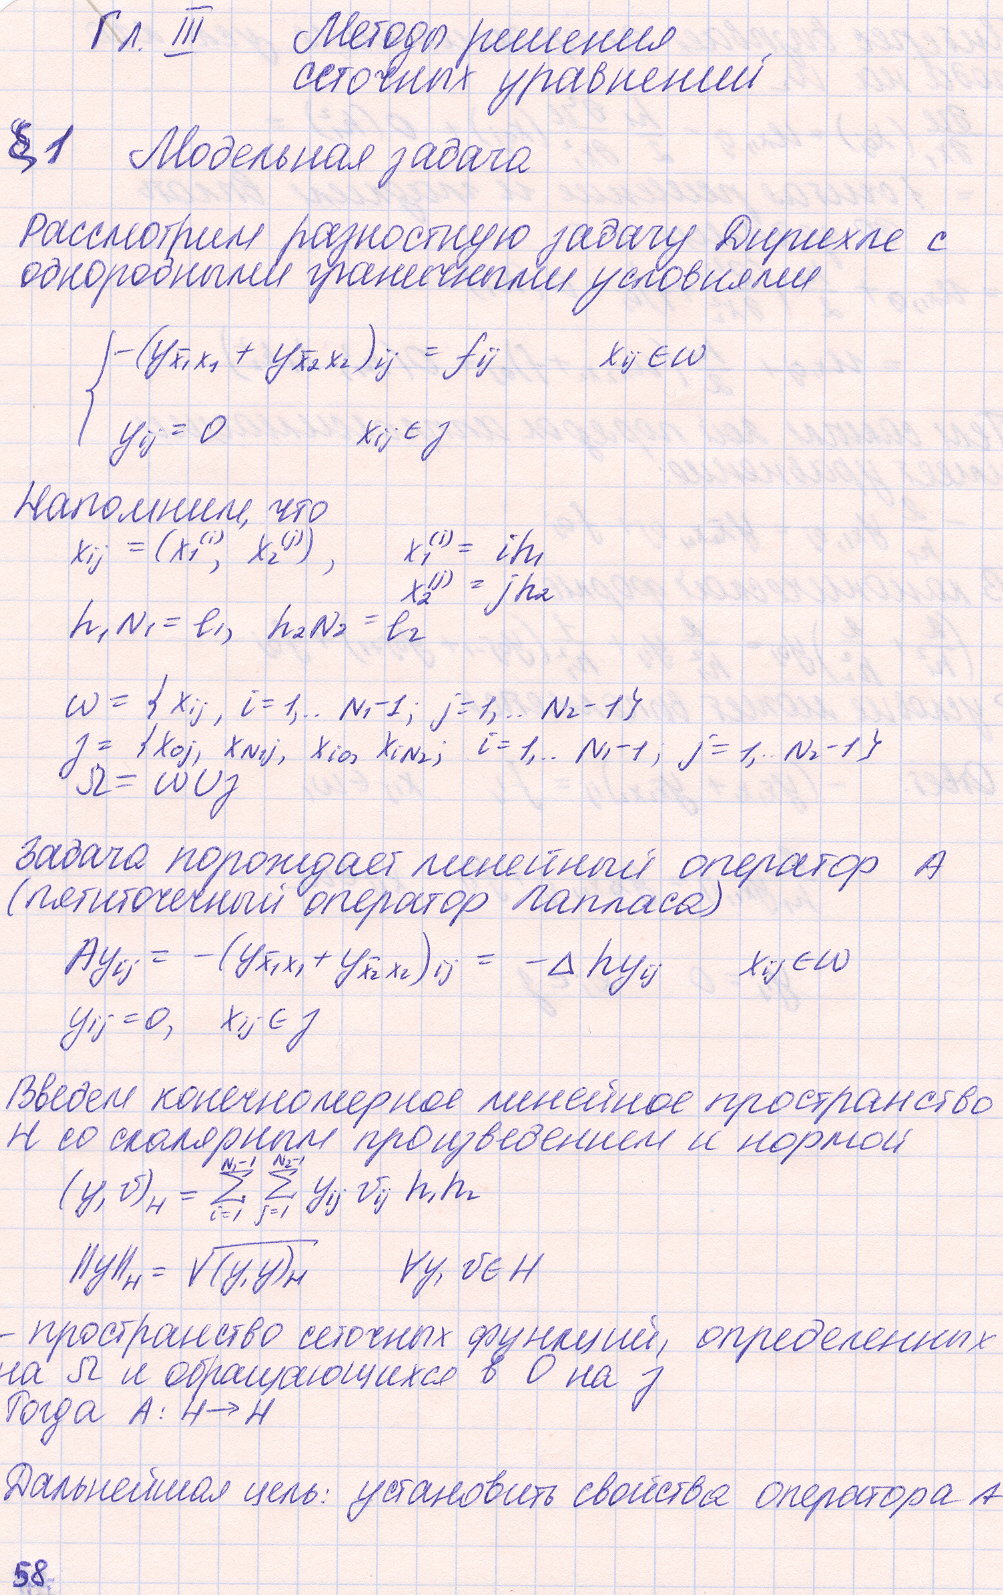 Гл. III Методы решения
сеточных уравнений
§1 Модельная задача
Рассмотрим разностную задачу Дирихле с
однородными граничными условиями
{ -(y_{x̄₁x₁} + y_{x̄₂x₂})_{ij} = f_{ij} x_{ij} ∈ ω
y_{ij} = 0 x_{ij} ∈ γ
Напомним, что
x_{ij} = (x₁^{(i)}, x₂^{(j)}), x₁^{(i)} = ih₁
x₂^{(j)} = jh₂
h₁N₁ = l₁, h₂N₂ = l₂
ω = {x_{ij}, i=1,.. N₁-1; j=1,.. N₂-1}
γ = {x_{0j}, x_{N₁j}, x_{i0}, x_{iN₂}; i=1,.. N₁-1; j=1,.. N₂-1}
Ω = ω∪γ
Задача порождает линейный оператор A
(пятиточечный оператор Лапласа)
Ay_{ij} = -(y_{x̄₁x₁} + y_{x̄₂x₂})_{ij} = -Δhy_{ij} x_{ij} ∈ ω
y_{ij} = 0, x_{ij} ∈ γ
Введем конечномерное линейное пространство
H со скалярным произведением и нормой
(y, v)_H = ∑_{i=1}^{N₁-1} ∑_{j=1}^{N₂-1} y_{ij} v_{ij} h₁h₂
||y||_H = √(y,y)_H ∀y, v ∈ H
- пространство сеточных функций, определенных
на Ω и обращающихся в 0 на γ
Тогда A: H→H
Дальнейшая цель: установить свойства оператора A
58